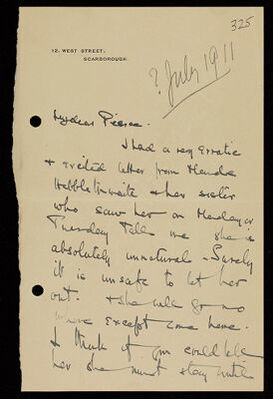 325
12, WEST STREET,
SCARBOROUGH.
? July 1911
My dear Pierce.
I had a very erratic
& excited letter from
Hebblethwaite & her sister
who saw her on Monday or
Tuesday tells me she is
absolutely unnatural - Surely
it is unsafe to let her
out. & she will go no
where except come here.
I think if you could tell
her she must stay until